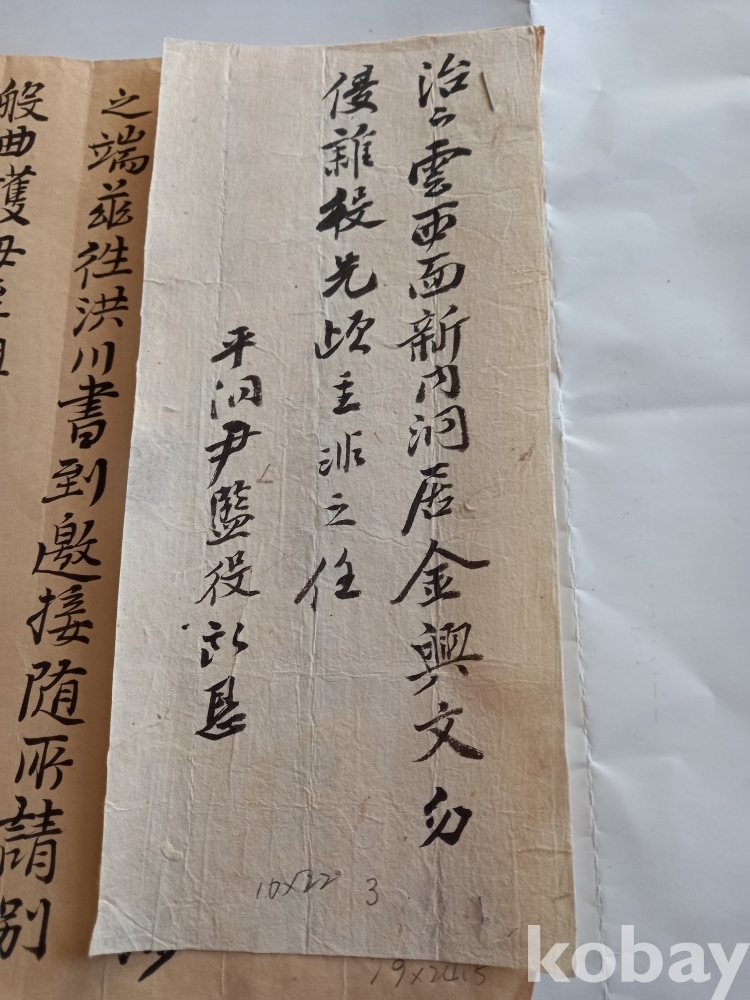 治下雲西面新內洞居金興文勿
侵雜役先頉主非之任
平洞尹監役 恳
之端茲徃洪川書到邀接随所請別
般曲護毋
10×22 3
19×24.5
kobay